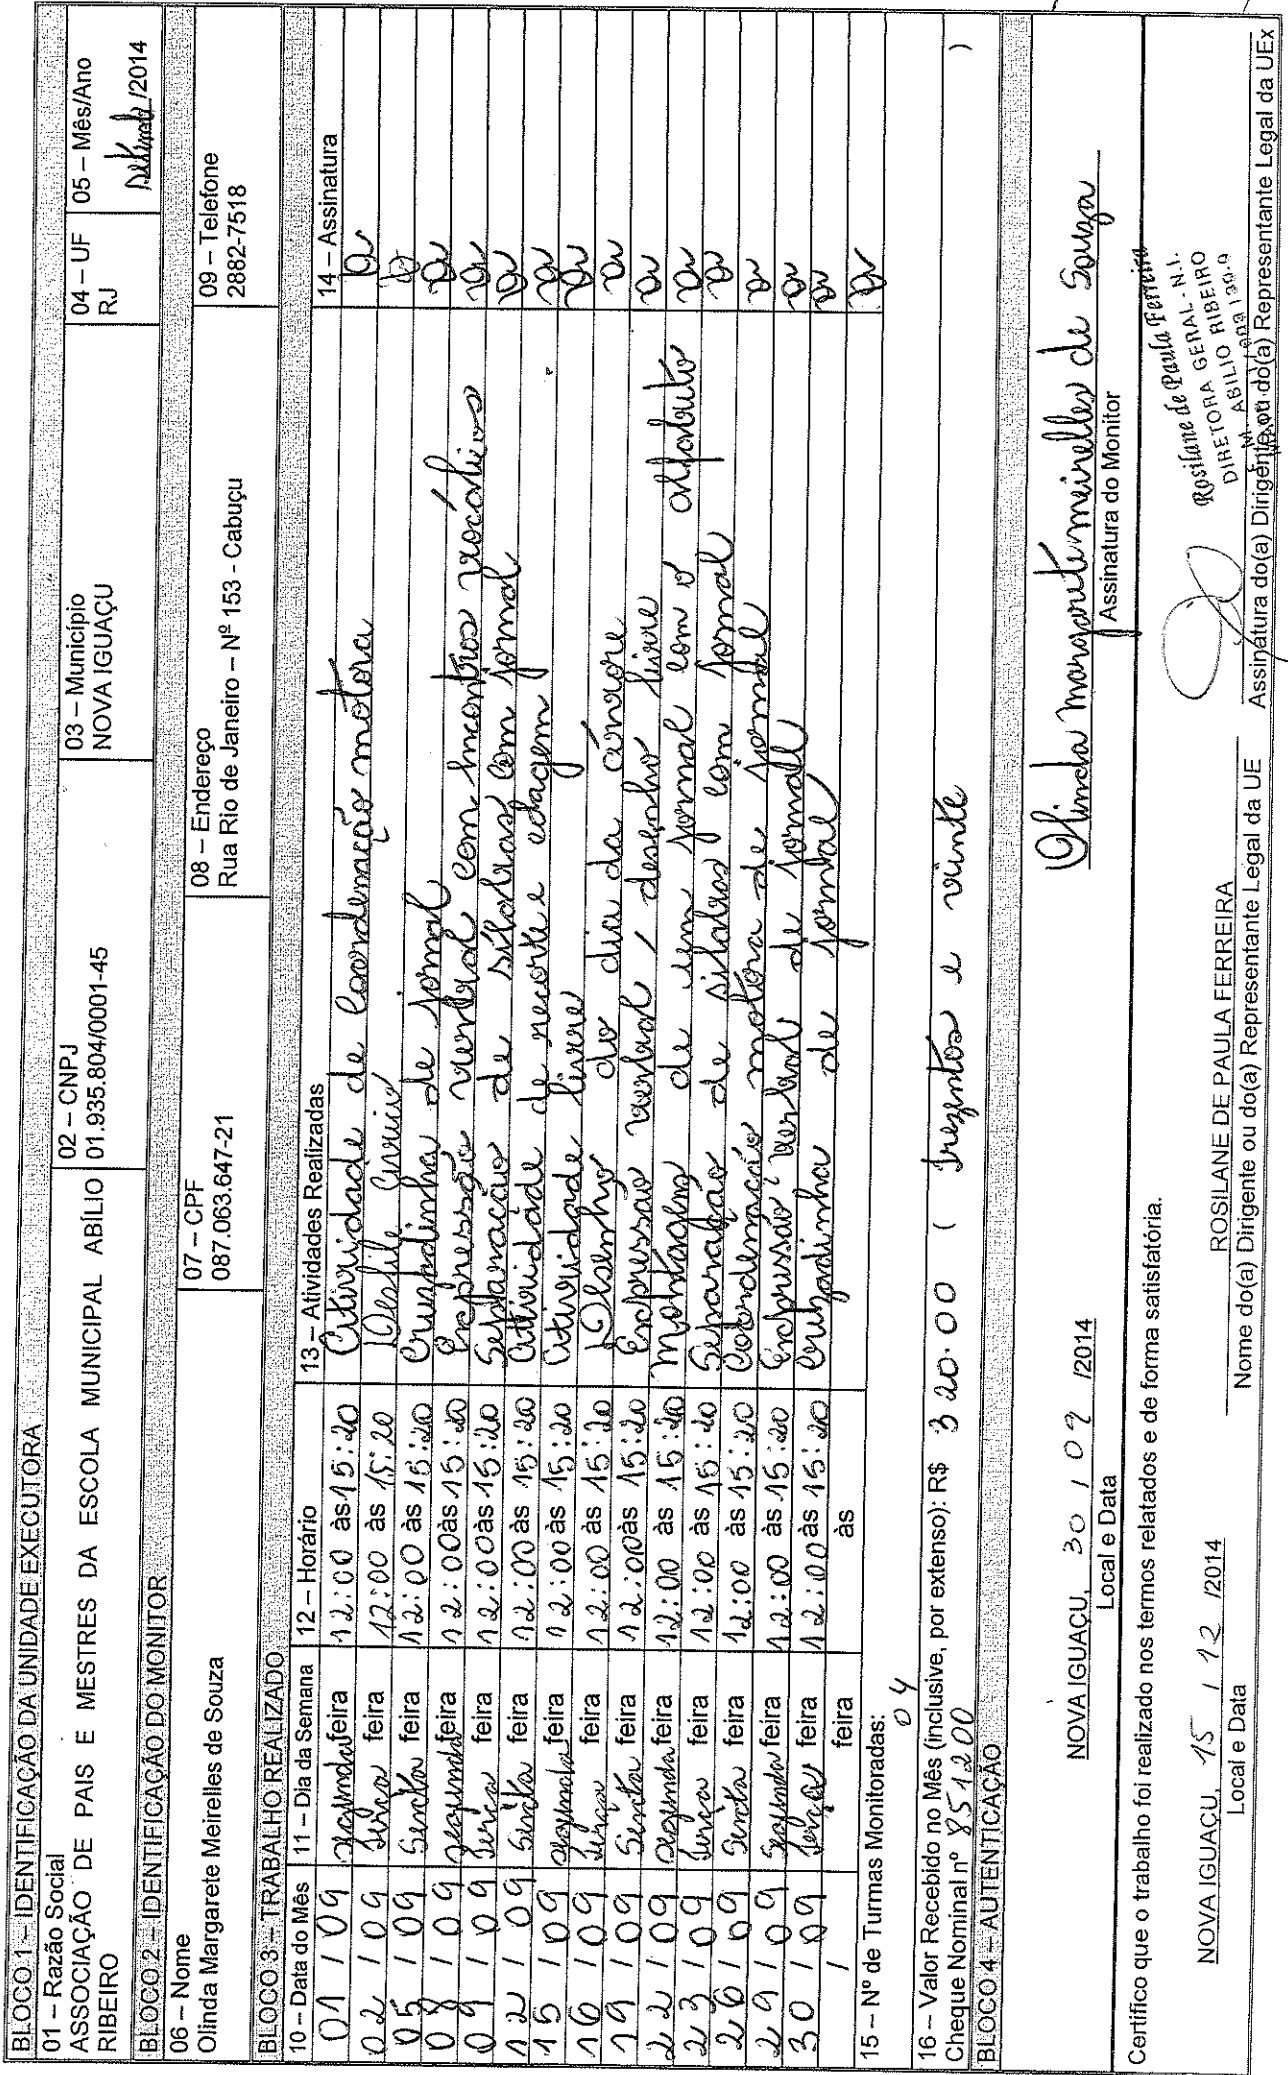 BLOCO 1 – IDENTIFICAÇÃO DA UNIDADE EXECUTORA
01 – Razão Social
ASSOCIAÇÃO DE PAIS E MESTRES DA ESCOLA MUNICIPAL ABÍLIO
RIBEIRO
02 – CNPJ
01.935.804/0001-45
03 – Município
NOVA IGUAÇU
04 – UF
RJ
05 – Mês/Ano
setembro /2014
BLOCO 2 – IDENTIFICAÇÃO DO MONITOR
06 – Nome
Olinda Margarete Meirelles de Souza
07 – CPF
087.063.647-21
08 – Endereço
Rua Rio de Janeiro – Nº 153 - Cabuçu
09 – Telefone
2882-7518
BLOCO 3 – TRABALHO REALIZADO
10 – Data do Mês 11 – Dia da Semana 12 – Horário 13 – Atividades Realizadas 14 – Assinatura
01 / 09 segunda feira 12:00 às 15:20 Atividade de Coordenação motora
02 / 09 terça feira 12:00 às 15:20 Desfile Cívico
05 / 09 Sexta feira 12:00 às 15:20 Cruzadinha de jornal
08 / 09 segunda feira 12:00 às 15:20 Expressão verbal com encontros vocálicos
09 / 09 terça feira 12:00 às 15:20 Separação de sílabas com jornal
12 / 09 Sexta feira 12:00 às 15:20 Atividade de recorte e colagem
15 / 09 segunda feira 12:00 às 15:20 Atividade livre
16 / 09 terça feira 12:00 às 15:20 Desenho do dia da árvore
19 / 09 Sexta feira 12:00 às 15:20 Expressão verbal / desenho livre
22 / 09 segunda feira 12:00 às 15:20 Montagem de um jornal com o alfabeto
23 / 09 terça feira 12:00 às 15:20 Separação de silabas com jornal
26 / 09 Sexta feira 12:00 às 15:20 Coordenação motora de jornal
29 / 09 Segunda feira 12:00 às 15:20 Expressão verbal de jornal
30 / 09 terça feira 12:00 às 15:20 Cruzadinha de jornal
/ feira às
15 – Nº de Turmas Monitoradas:
04
16 – Valor Recebido no Mês (inclusive, por extenso): R$ 320.00 ( trezentos e vinte )
Cheque Nominal nº 851200
BLOCO 4 – AUTENTICAÇÃO
NOVA IGUAÇU, 30 / 09 /2014
Local e Data
Olinda margarete meirelles de Souza
Assinatura do Monitor
Certifico que o trabalho foi realizado nos termos relatados e de forma satisfatória.
NOVA IGUAÇU, 15 / 12 /2014
Local e Data
ROSILANE DE PAULA FERREIRA
Nome do(a) Dirigente ou do(a) Representante Legal da UE
Rosilane de Paula Ferreira
DIRETORA GERAL - N.I.
DIRETORA
ABILIO RIBEIRO
Assinatura do(a) Dirigente ou do(a) Representante Legal da UEx